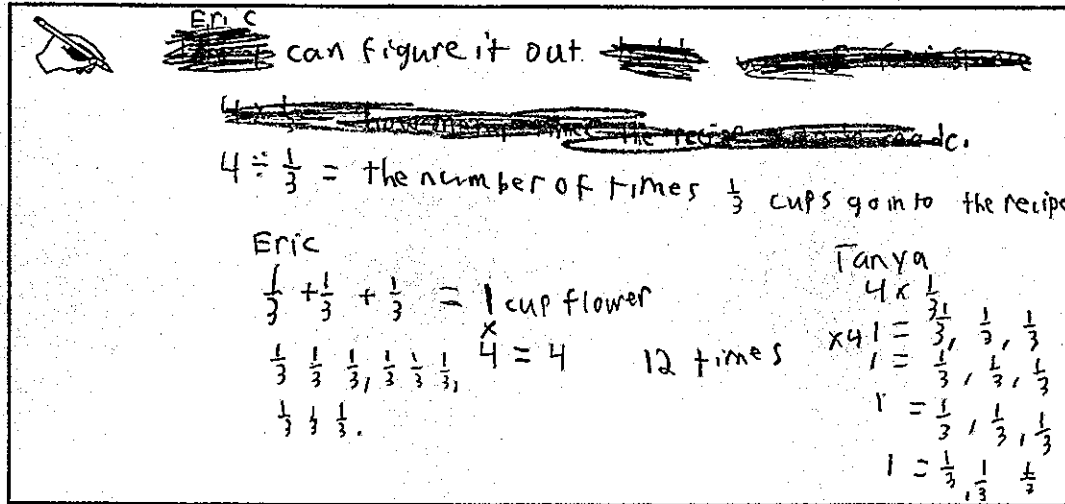 Eric
can figure it out
4 ÷ 1/3 = the number of times 1/3 cups go in to the recipe
Eric
1/3 + 1/3 + 1/3 = 1 cup flower
x
1/3 1/3 1/3, 1/3 1/3 1/3, 4 = 4 12 times
1/3 1/3 1/3.
Tanya
4 x 1/3
x4 1 = 1/3, 1/3, 1/3
1 = 1/3, 1/3, 1/3
1 = 1/3, 1/3, 1/3
1 = 1/3, 1/3 1/3